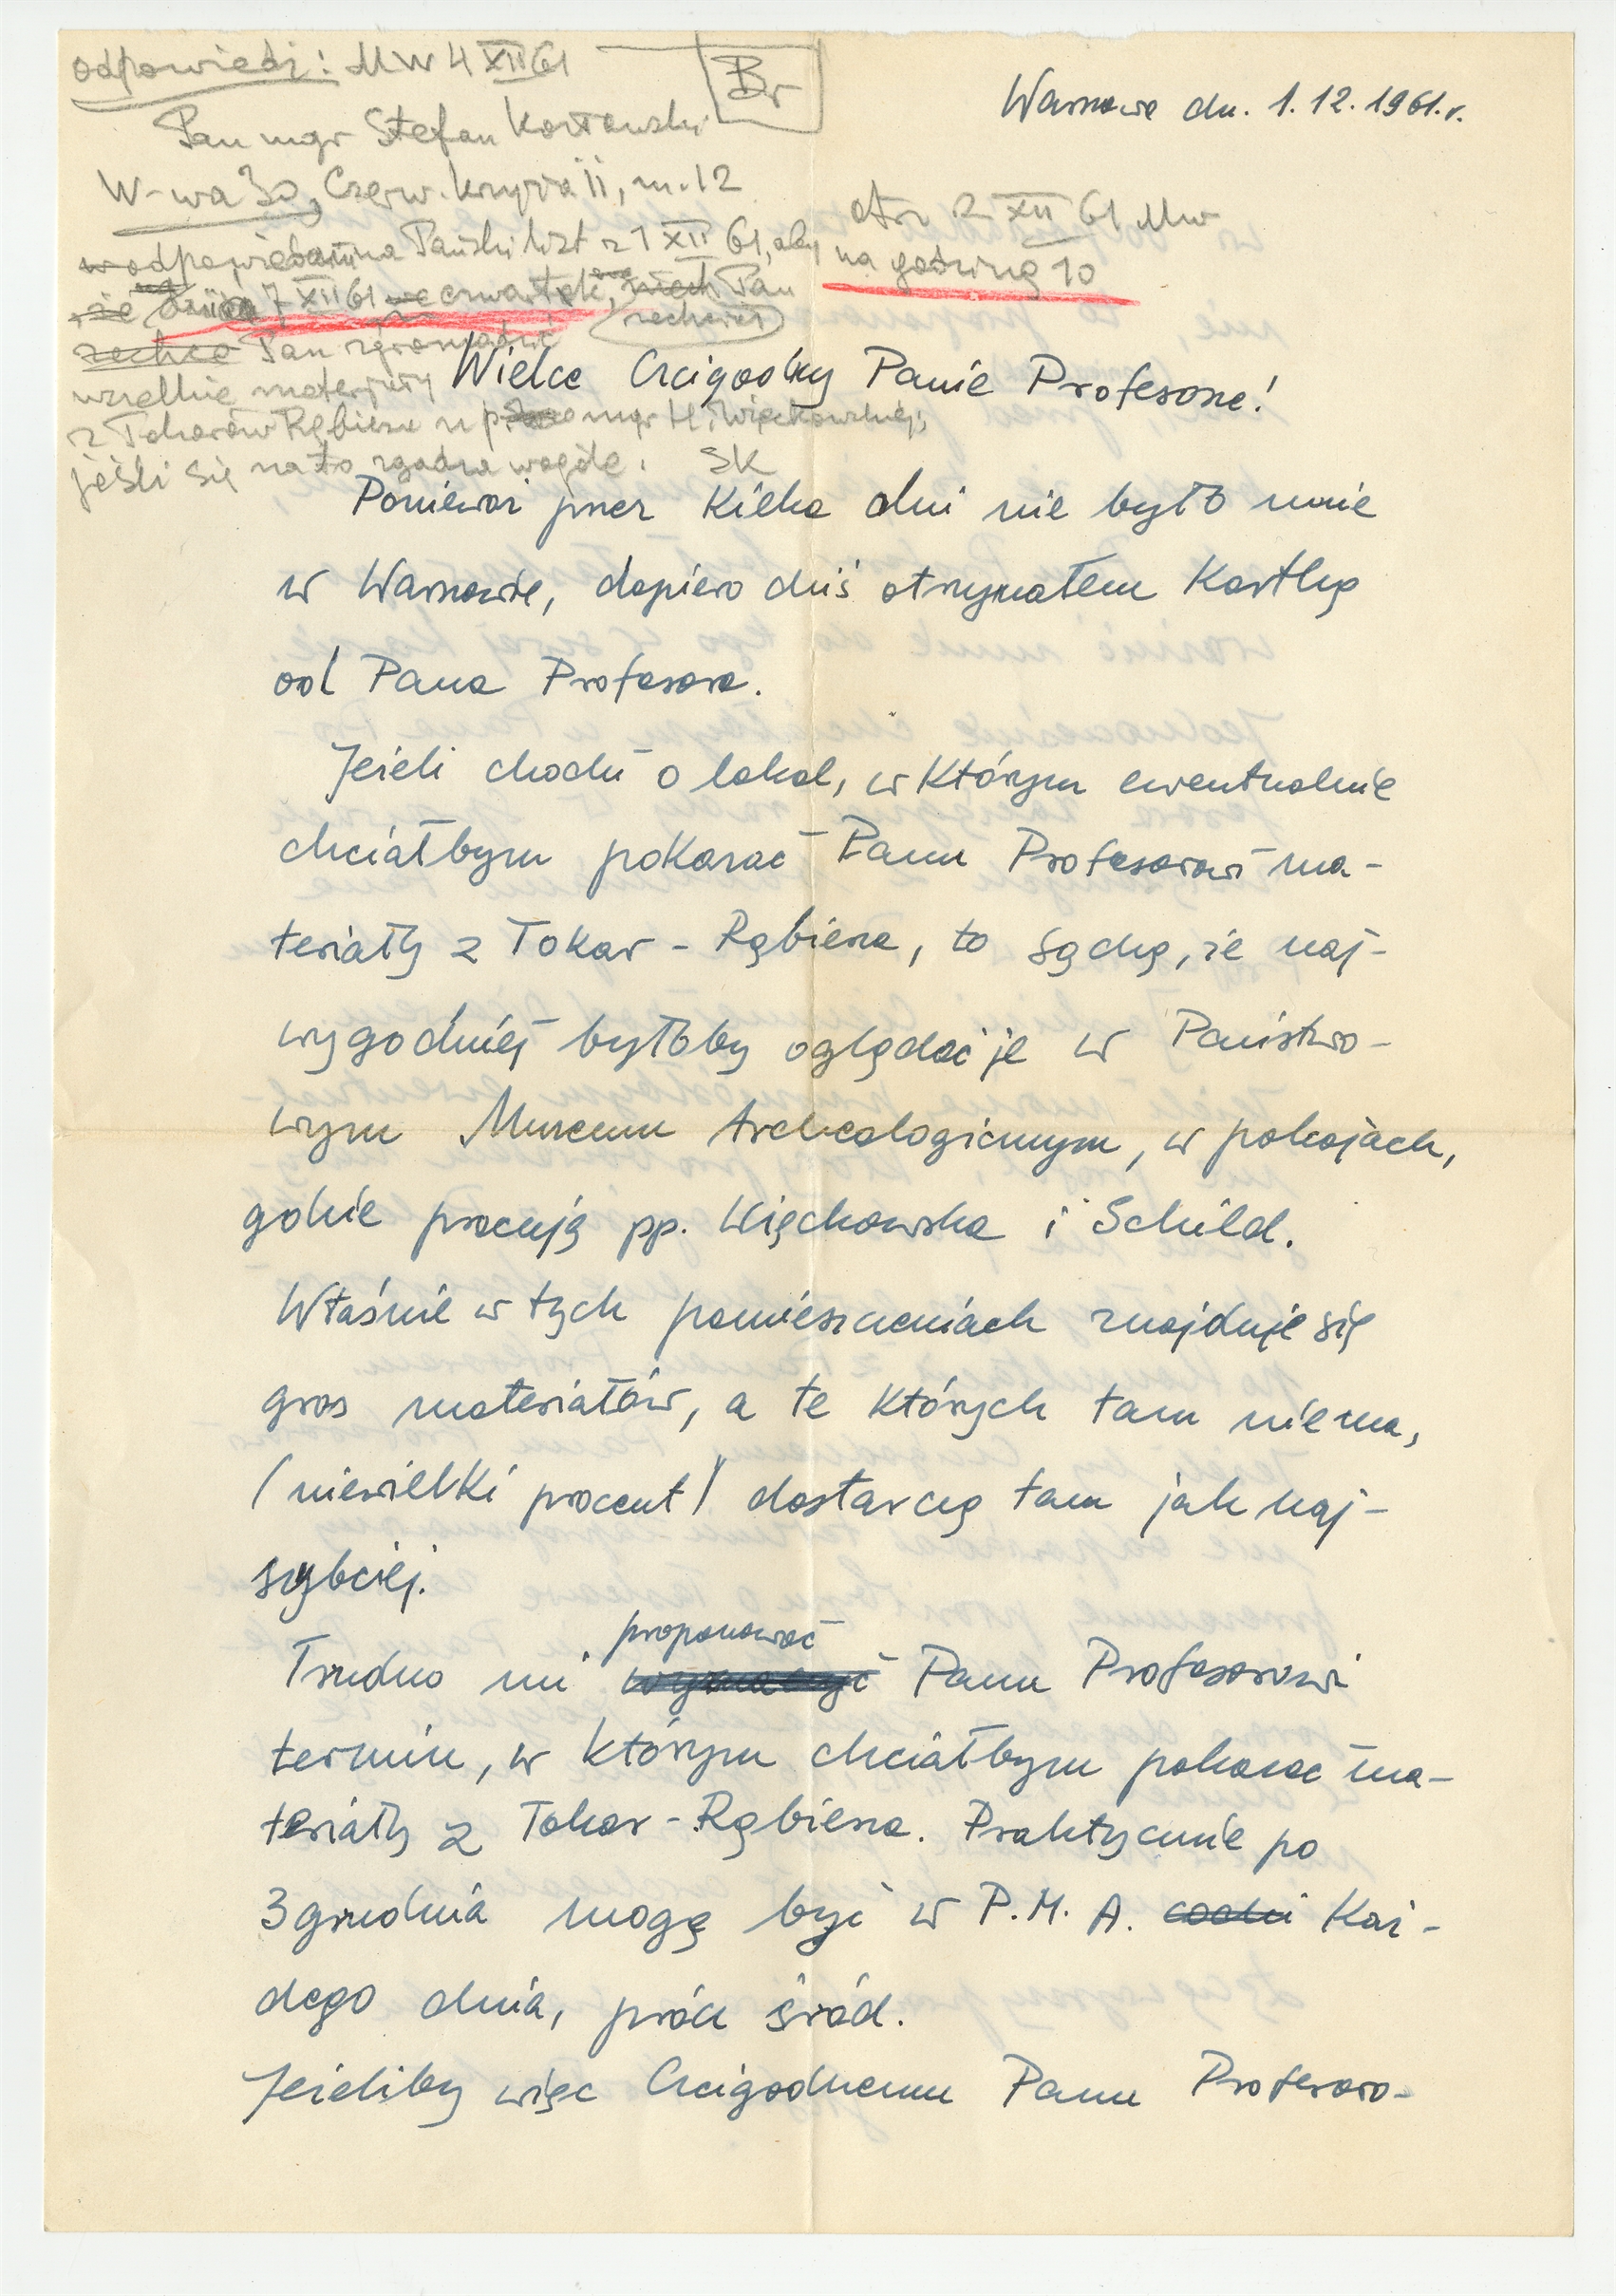 odpowiedź: MW 4 XII 61
Br
Pan mgr Stefan Kozłowski
W-wa 30, Czerw. Krzyża 11, m. 12
odpowiedam na Pański list z 1 XII 61, aby
7 XII 61 we czwartek, niech Pan
zechciał
zechce Pan zgromadzić
wszelkie materjały
z Tokarów Rębiesz u mgr H. Więckowskiej,
jeśli się na to zgadza wogóle. SK
Warszawa dn. 1.12.1961.r.
otrz 2 XII 61 MW
na godzinę 10
Wielce Czcigodny Panie Profesorze!
Ponieważ przez kilka dni nie było mnie
w Warszawie, dopiero dziś otrzymałem kartkę
od Pana Profesora.
Jeżeli chodzi o lokal, w którym ewentualnie
chciałbym pokazać Panu Profesorowi ma-
teriały z Tokar - Rąbierza, to sądzę, że naj-
wygodniej byłoby oglądać je w Państwo-
wym Muzeum Archeologicznym, w pokojach,
gdzie pracują pp. Więckowska i Schild.
Właśnie w tych pomieszczeniach znajduje się
gros materiałów, a te których tam nie ma,
(niewielki procent) dostarczę tam jak naj-
szybciej.
proponować
Trudno mi wyznaczyć Panu Profesorowi
termin, w którym chciałbym pokazać ma-
teriały z Tokar - Rąbierza. Praktycznie po
3 grudnia mogę być w P.M.A. każ-
dego dnia, prócz śród.
Jeżeliby więc Czcigodnemu Panu Profesoro-